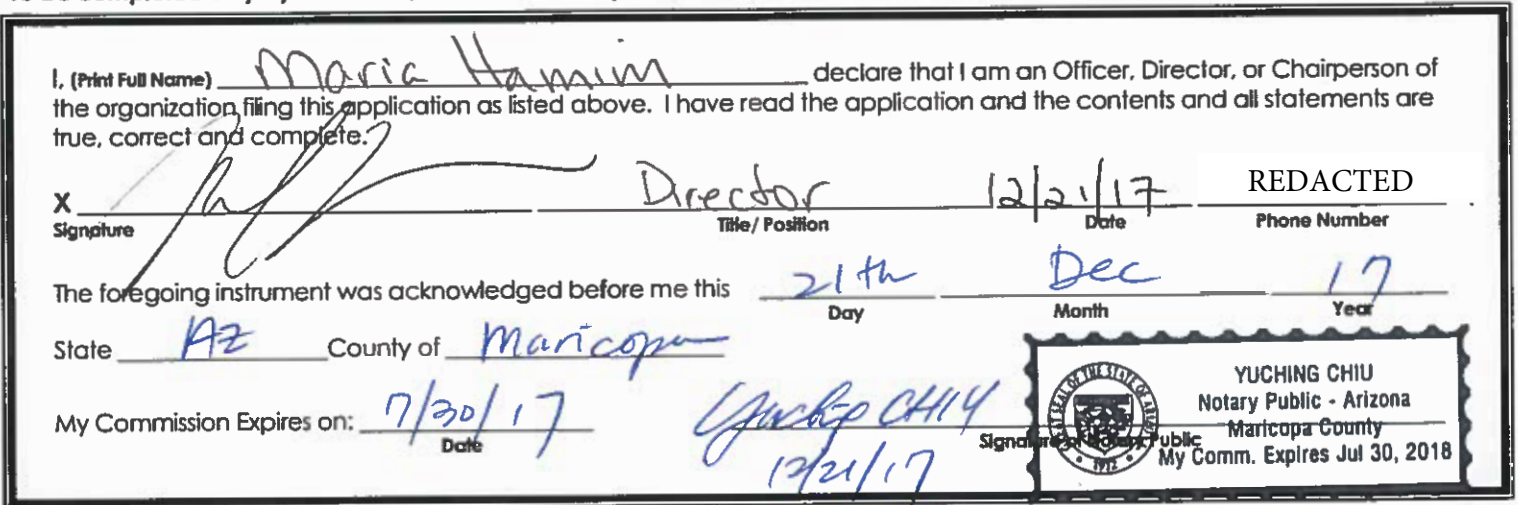 I, (Print Full Name) Maria Hamim declare that I am an Officer, Director, or Chairperson of
the organization filing this application as listed above. I have read the application and the contents and all statements are
true, correct and complete.
X Director 12/21/17 REDACTED
Signature Title/ Position Date Phone Number
The foregoing instrument was acknowledged before me this 21th Dec 17
Day Month Year
State AZ County of Maricopa
My Commission Expires on: 7/30/17 CHIU
Date Signature of Notary Public
12/21/17
GREAT SEAL OF THE STATE OF ARIZONA
1912
YUCHING CHIU
Notary Public - Arizona
Maricopa County
My Comm. Expires Jul 30, 2018